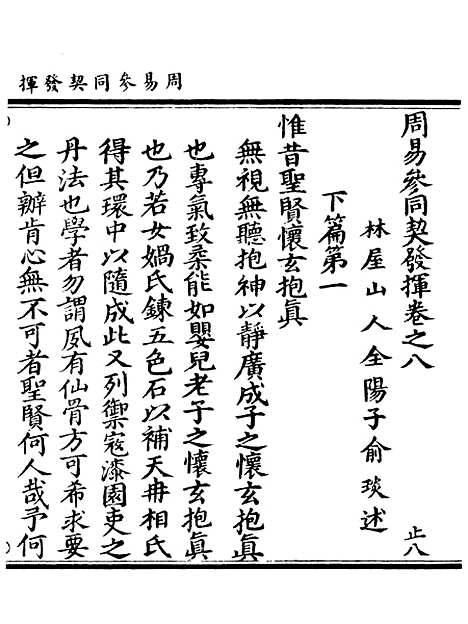 周易參同契發揮
周易參同契發揮卷之八 止八
林屋山人全陽子俞琰述
下篇第一
惟昔聖賢懷玄抱眞
無視無聽抱神以靜廣成子之懷玄抱眞
也專氣致柔能如嬰兒老子之懷玄抱眞
也乃若女媧氏鍊五色石以補天冉相氏
得其環中以隨成此又列禦寇漆園吏之
丹法也學者勿謂夙有仙骨方可希求要
之但辦肯心無不可者聖賢何人哉予何